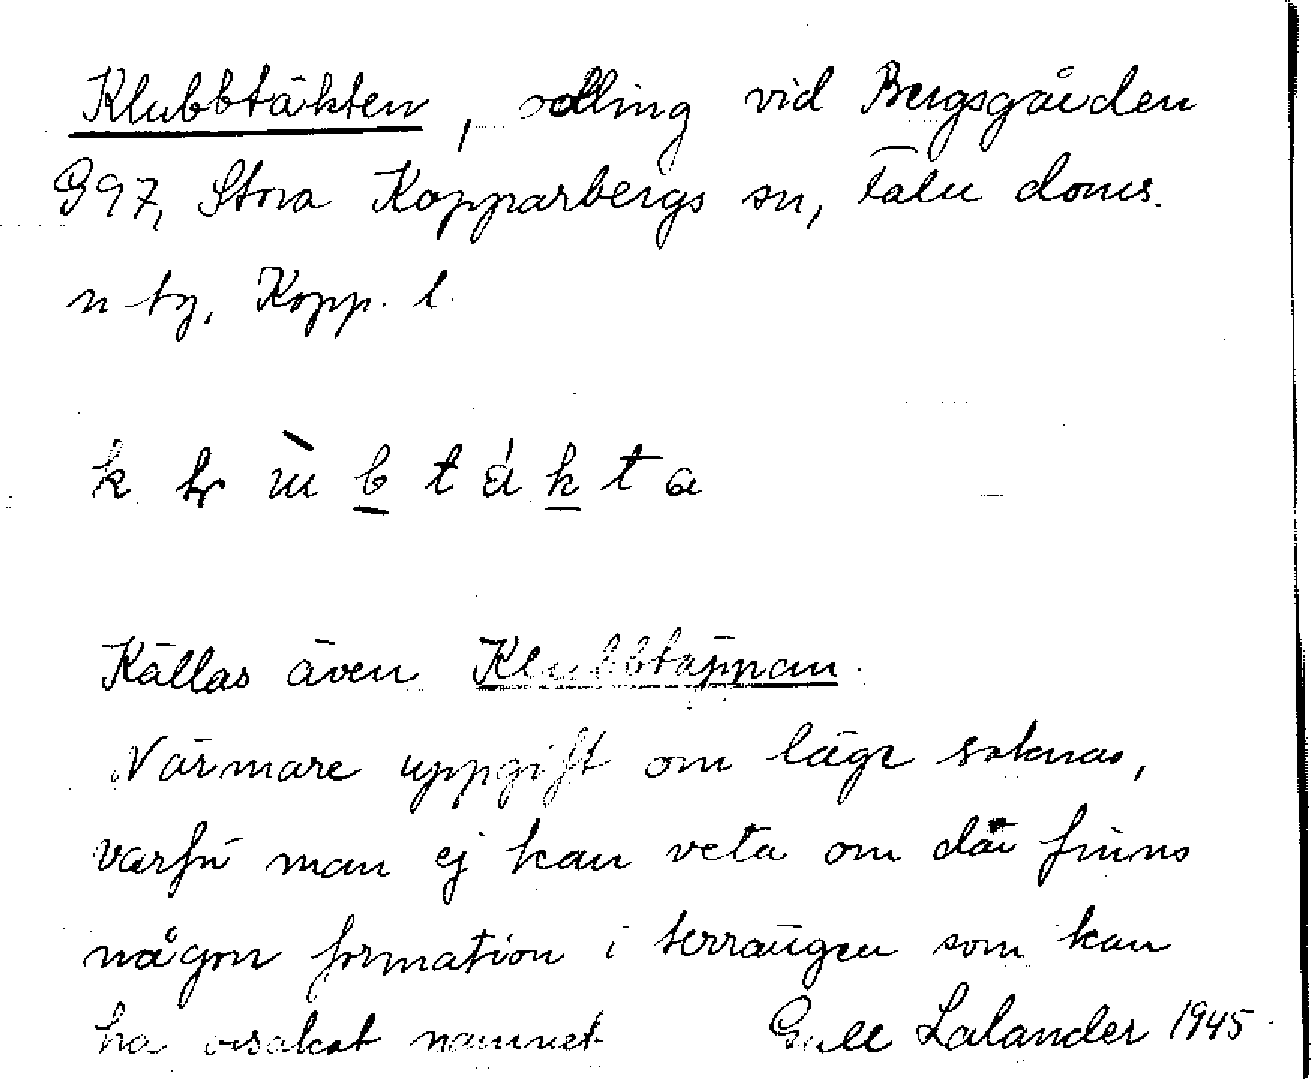 Klubbtäkten, odling vid Bergsgården
G97, Stora Kopparbergs sn, Falu doms.
n tg, Kopp. l.
Kallas även Klubbtäppan.
Närmare uppgift om läge saknas,
varför man ej kan veta om där finns
någon formation i terrängen som kan
ha orsakat namnet Gull Lalander 1945